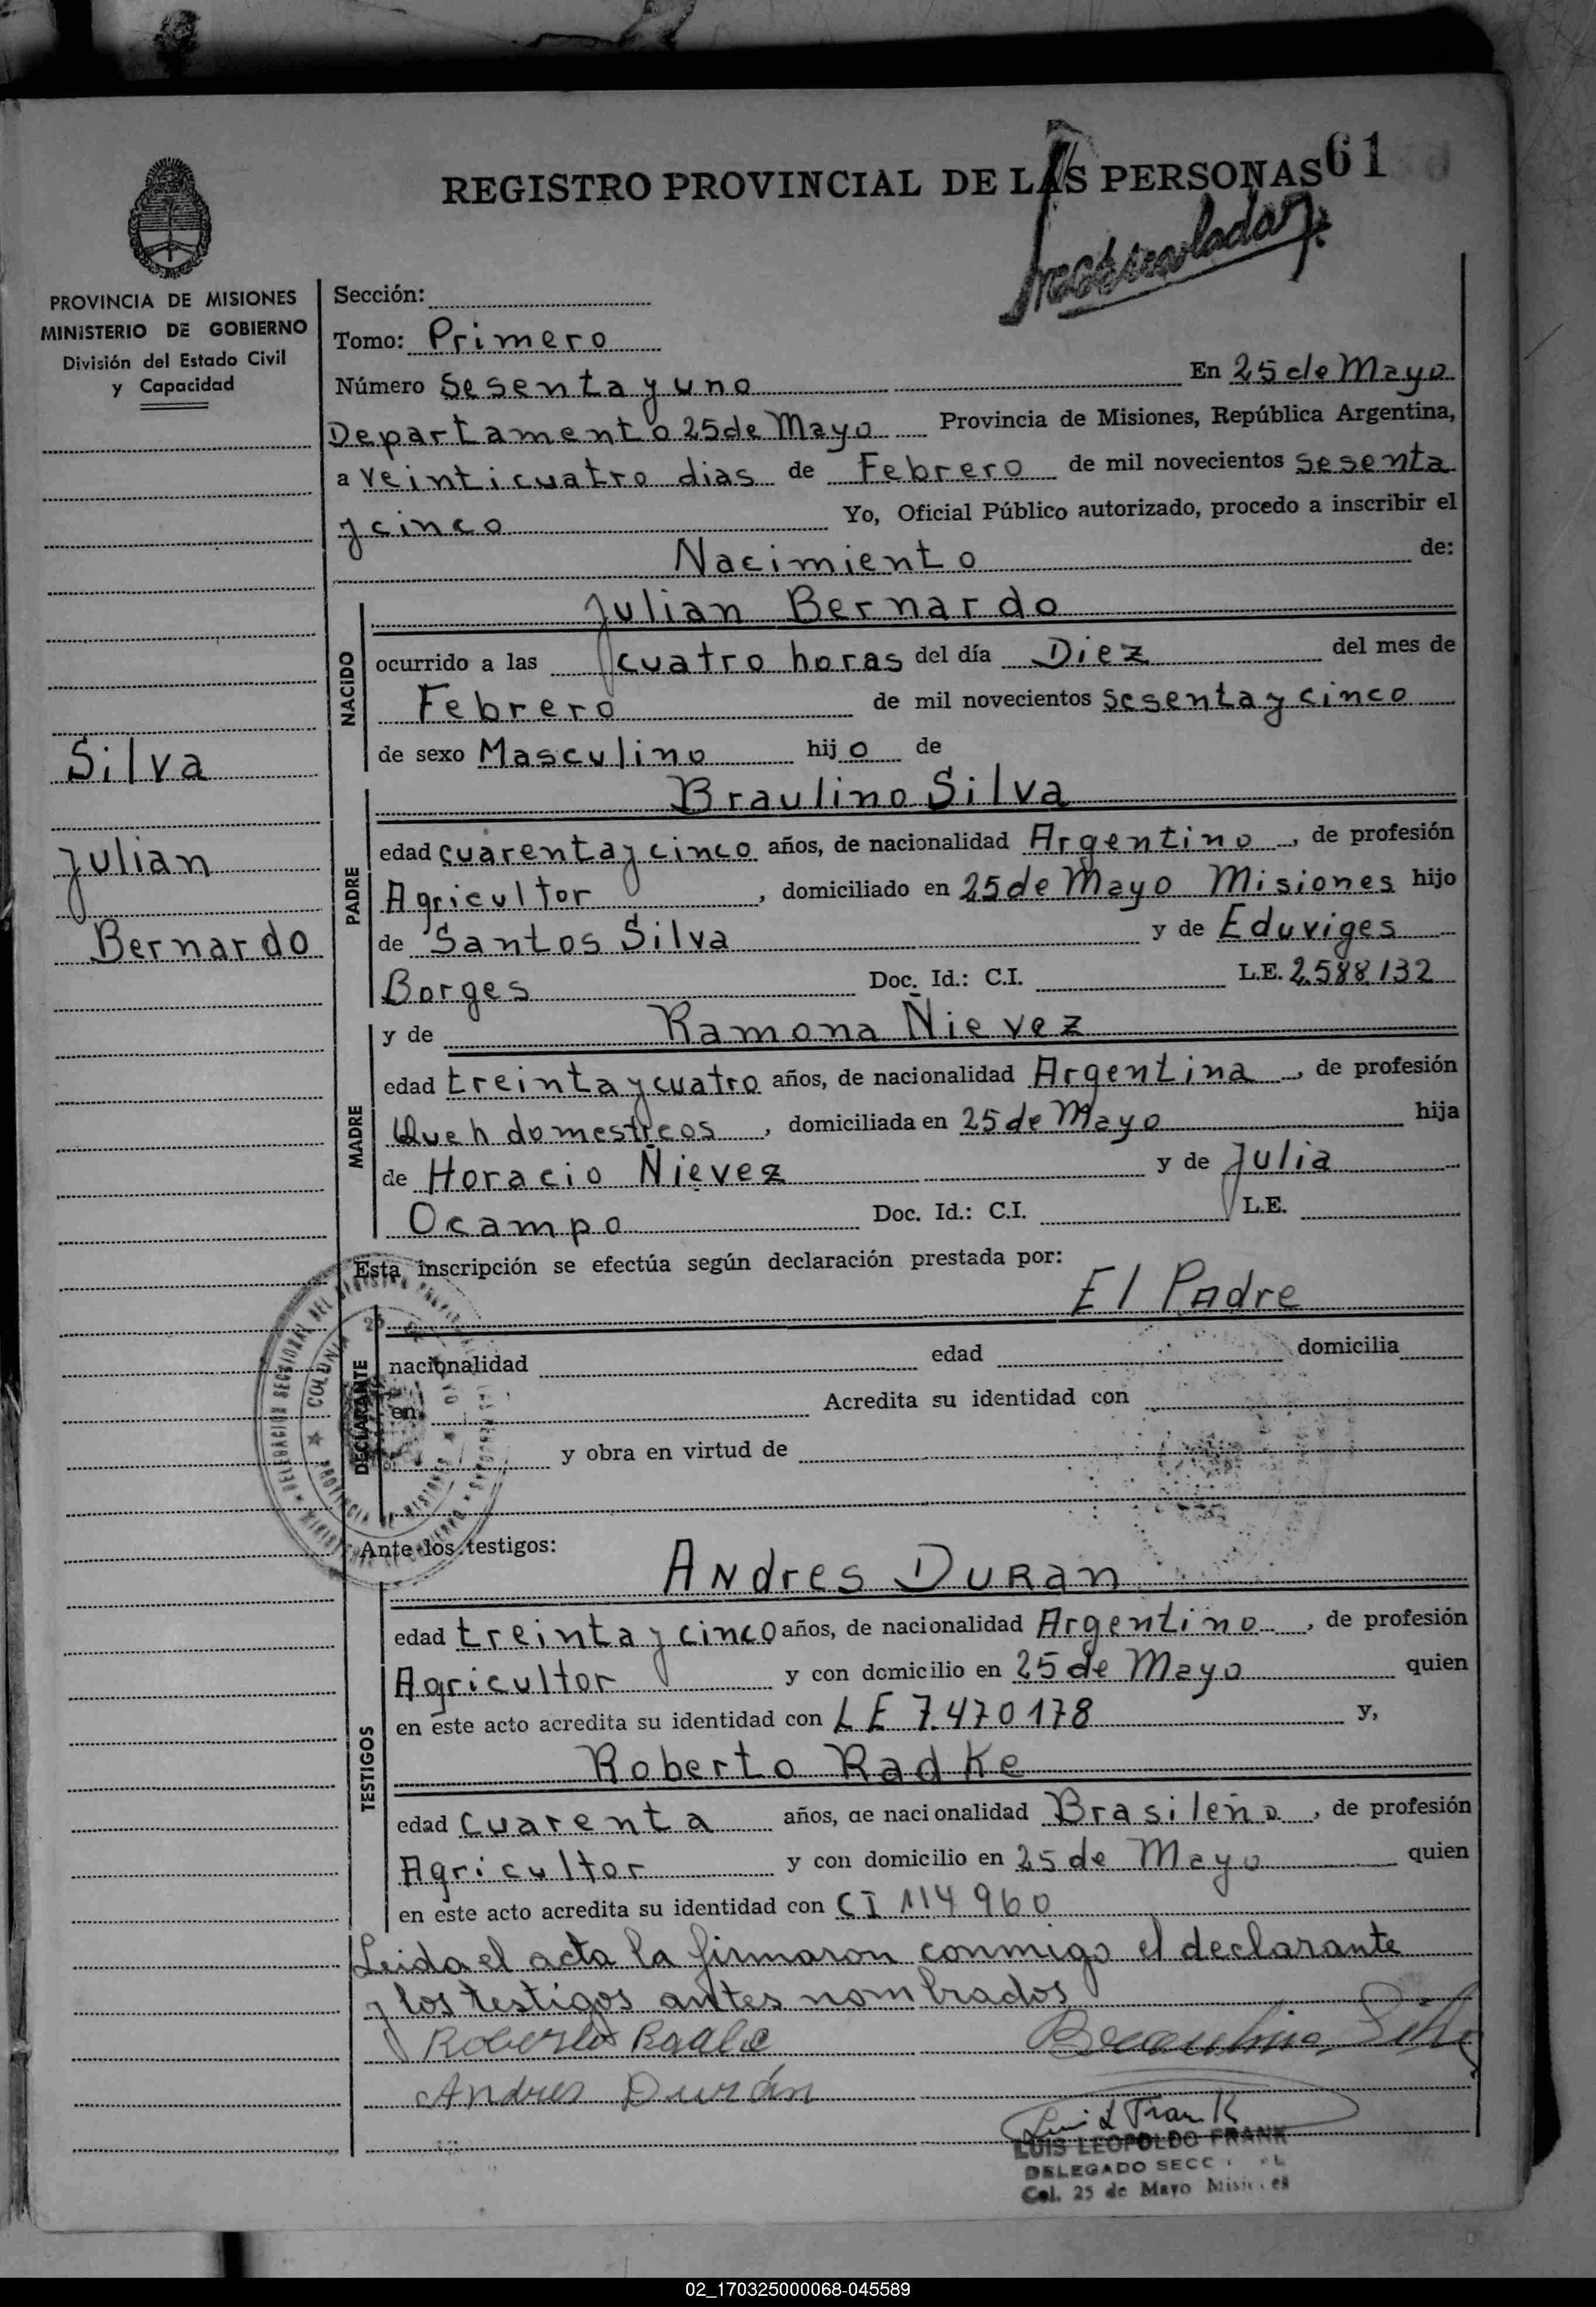 REGISTRO PROVINCIAL DE LAS PERSONAS 61
PROVINCIA DE MISIONES
MINISTERIO DE GOBIERNO
División del Estado Civil
y Capacidad
Silva
Julian
Bernardo
Sección:
Tomo: Primero
Número Sesenta y uno En 25 de Mayo
Departamento 25 de Mayo Provincia de Misiones, República Argentina,
a Veinticuatro dias de Febrero de mil novecientos sesenta
y cinco Yo, Oficial Público autorizado, procedo a inscribir el
Nacimiento de:
NACIDO
Julian Bernardo
ocurrido a las cuatro horas del día Diez del mes de
Febrero de mil novecientos sesenta y cinco
de sexo Masculino hijo de
PADRE
Braulino Silva
edad cuarenta y cinco años, de nacionalidad Argentino, de profesión
Agricultor, domiciliado en 25 de Mayo Misiones hijo
de Santos Silva y de Eduviges
Borges Doc. Id.: C.I. L.E. 2.588.132
MADRE
y de Ramona Ñievez
edad treinta y cuatro años, de nacionalidad Argentina, de profesión
Queh domesticos, domiciliada en 25 de Mayo hija
de Horacio Ñievez y de Julia
Ocampo Doc. Id.: C.I. L.E.
Esta inscripción se efectúa según declaración prestada por:
El Padre
DECLARANTE
nacionalidad edad domicilia
en Acredita su identidad con
y obra en virtud de
Ante los testigos:
TESTIGOS
Andres Duran
edad treinta y cinco años, de nacionalidad Argentino, de profesión
Agricultor y con domicilio en 25 de Mayo quien
en este acto acredita su identidad con LE 7.470178 y,
Roberto Radke
edad Cuarenta años, de nacionalidad Brasileño, de profesión
Agricultor y con domicilio en 25 de Mayo quien
en este acto acredita su identidad con CI 114960
Leida el acta la firmaron conmigo el declarante
y los testigos antes nombrados
Roberto
Braulino Silva
Andres Durán
Luis L Frank
LUIS LEOPOLDO FRANK
DELEGADO
Col. 25 de Mayo
02_170325000068-045589